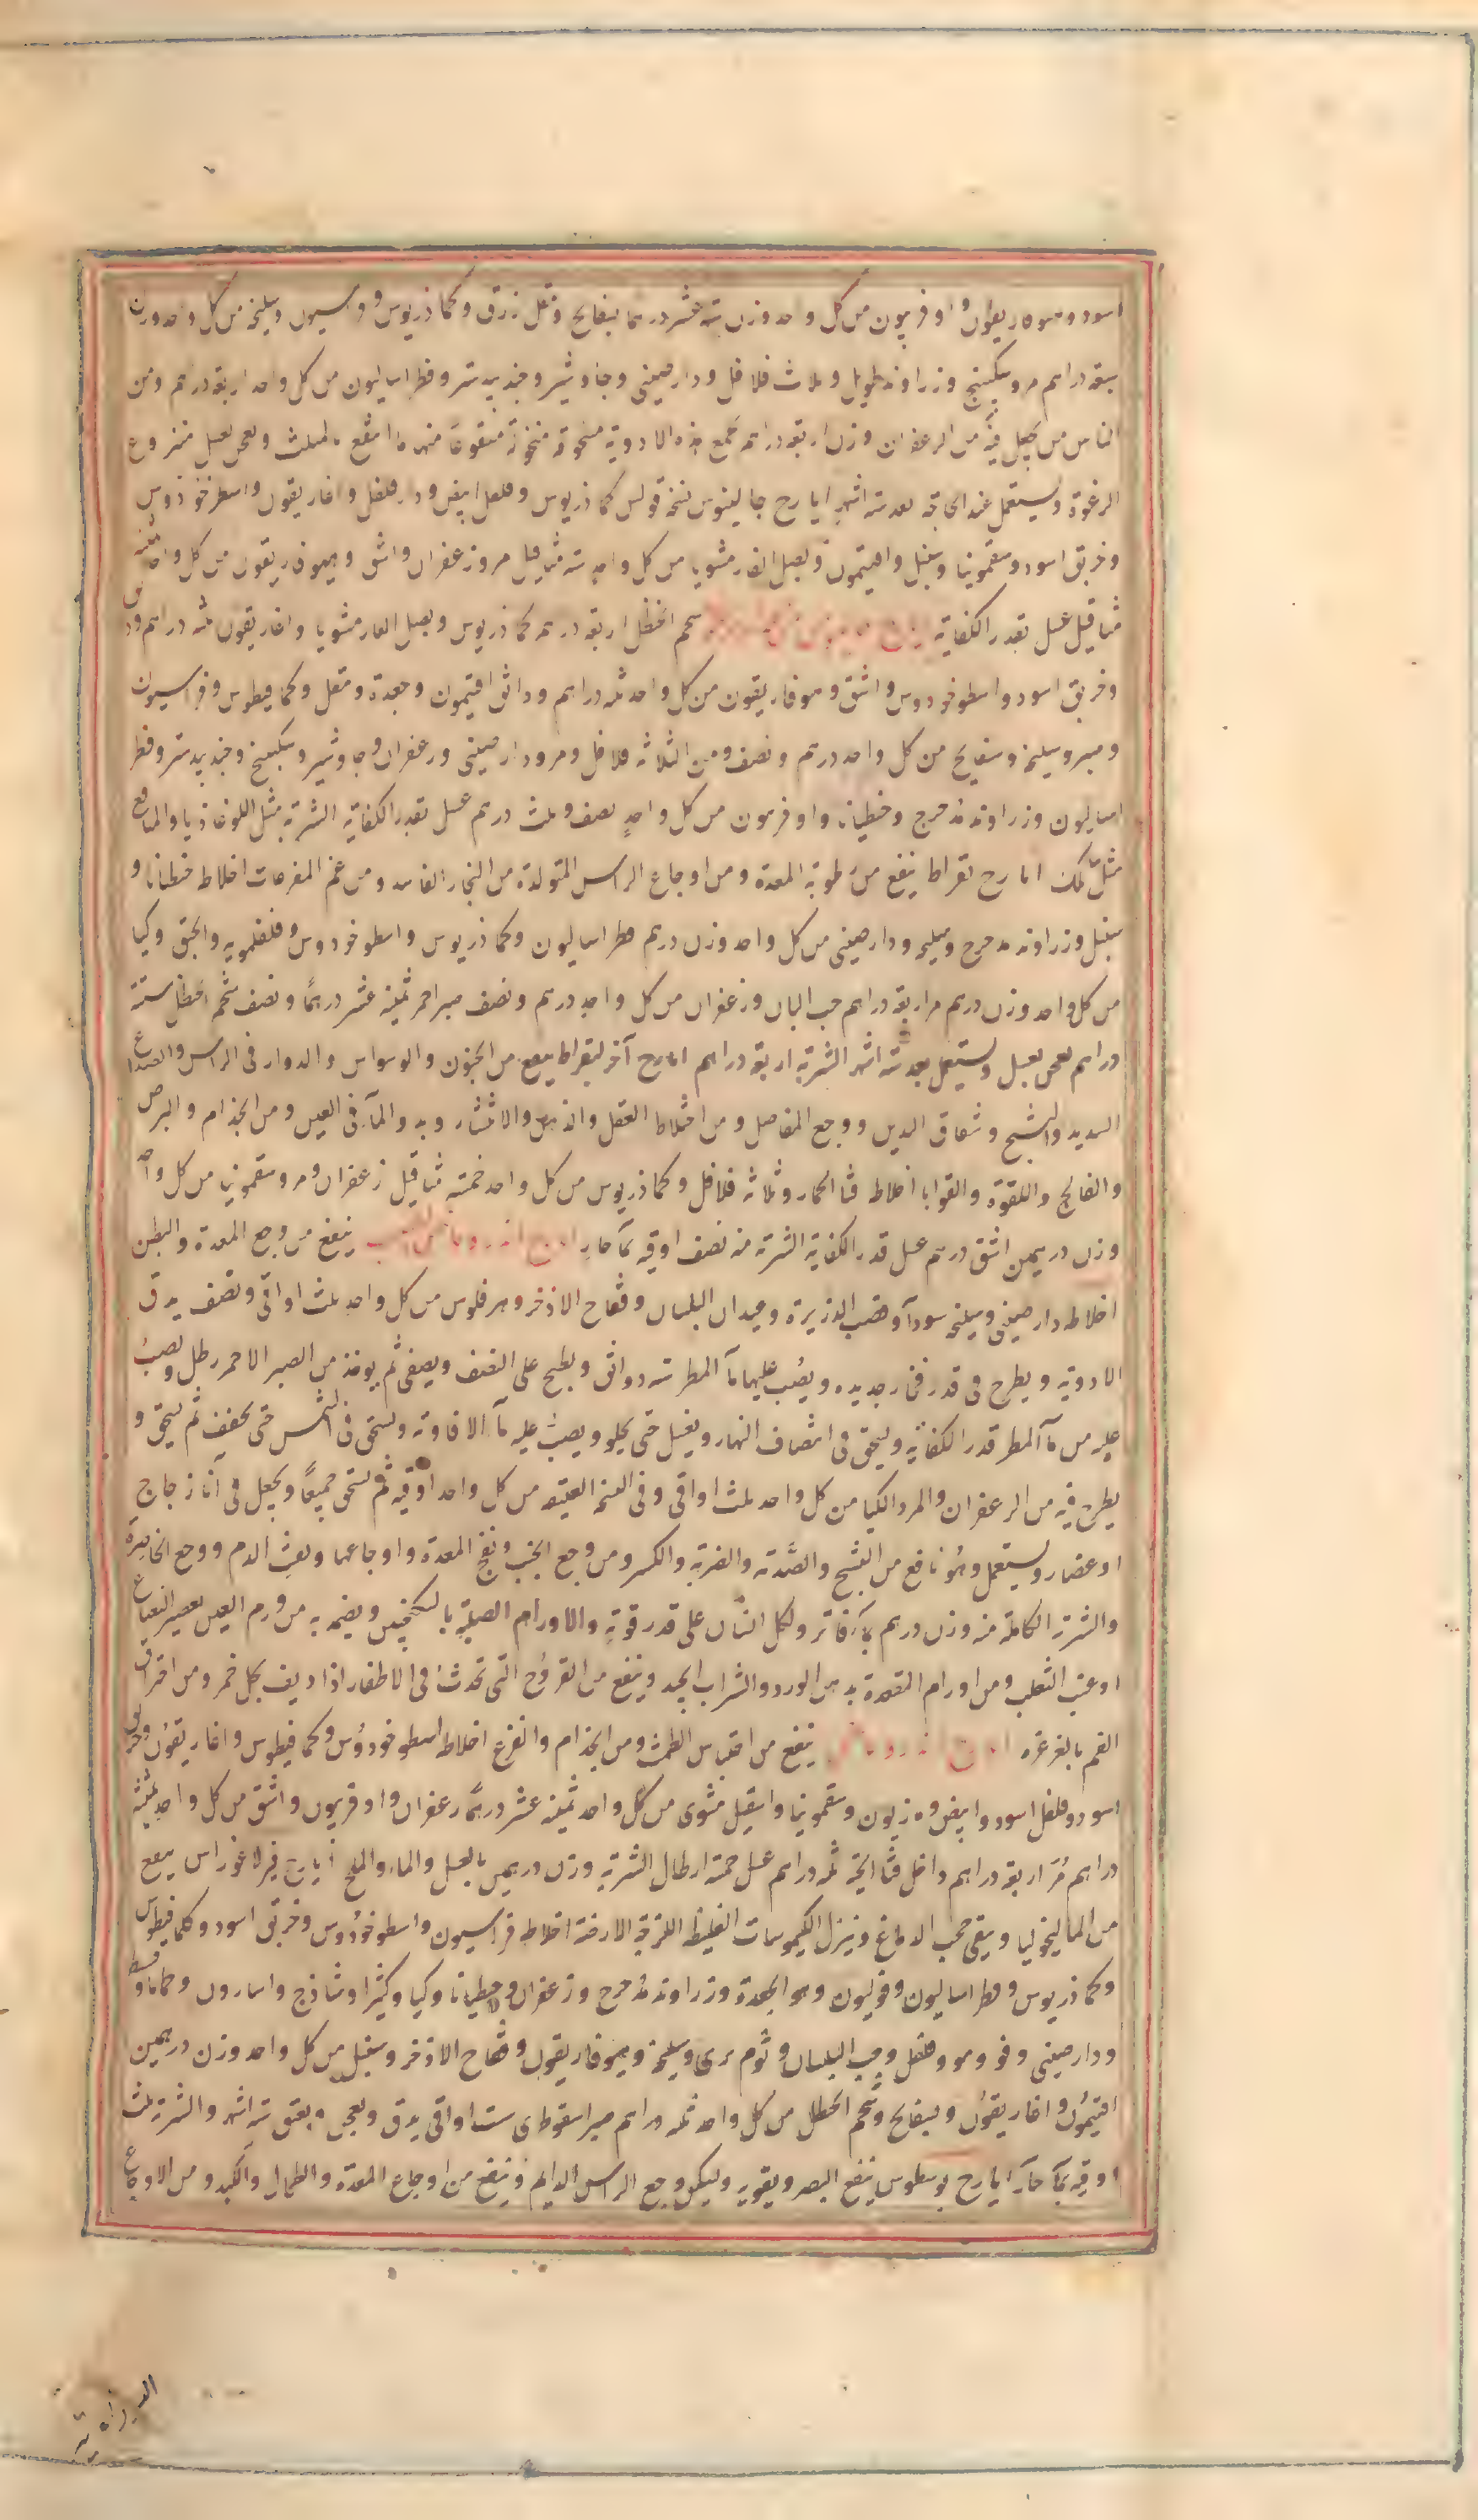 اسود وهوفاريقون واوفربيون من كل واحد وزن ستة عشر درهما بسفايج ومقل ازرق وكمادريوس وفراسيون وسليخه من كل واحد وزن
سبعة دراهم مر وسكبينج وزراوند طويل وثلاث فلافل ودارصيني وجاوشير وجندبيدستر وفطراساليون من كل واحد اربعة دراهم ومن
الناس من يجعل فيه من الزعفران وزن اربعة دراهم يجمع هذه الادوية مسحوقة منخولة منقوعًا منها ما انقع بالمثلث ويعجن بعسل منزوع
الرغوة ويستعمل عند الحاجة بعد ستة اشهر ايارج جالينوس نسخة فولس كمادريوس وفلفل ابيض ودارفلفل واغاريقون واسطوخودوس
وخربق اسود وسقمونيا وسنبل وافتيمون وبصل الفار مشويا من كل واحد ستة مثاقيل مر وزعفران واشق وهيوفاريقون من كل واحد ثمنية
مثاقيل عسل بقدر الكفاية شحم الحنظل اربعة دراهم كمادريوس وبصل الفار مشويا واغاريقون ثلثة دراهم
وخربق اسود واسطوخودوس واشق وهوفاريقون من كل واحد ثلثة دراهم ودانق افتيمون وجعدة ومقل وكمافيطوس وفراسيون
وصبر وسليخه وبسفايج من كل واحد درهم ونصف ومن الثلاثة فلافل ومر ودارصيني وزعفران وجاوشير وسكبينج وجندبيدستر وفطر
اساليون وزراوند مدحرج وجنطيانه واوفربيون من كل واحدٍ نصف وثلث درهم عسل بقدر الكفاية الشربة مثل اللوغاذيا والمنافع
مثل تلك ايارج بقراط ينفع من رطوبة المعدة ومن اوجاع الراس المتولدة من البخار الفاسد ومن غم المفرعات اخلاط جنطيانا و
سنبل وزراوند مدحرج وسليخه ودارصيني من كل واحد وزن درهم فطراساليون وكمادريوس واسطوخودوس وفلفلمويه والحبق وكيا
من كل واحد وزن درهم مر اربعة دراهم حب البان وزعفران من كل واحدٍ درهم ونصف صبر احمر ثمنية عشر درهمًا ونصف شحم الحنظل ستة
دراهم يعجن بعسل ويستعمل بعد ستة اشهر الشربة اربعة دراهم ايارج آخر لبقراط ينفع من الجنون والوسواس والدوار في الراس والصداع
الشديد والتشنج وشقاق اليدين ووجع المفاصل ومن اختلاط العقل والذهن والانتشار وبدو المآء في العين ومن الجذام والبرص
والفالج واللقوة والقوابا اخلاط قثا الحمار وثلاثة فلافل وكمادريوس من كل واحد خمسة مثاقيل زعفران ومر وسقمونيا من كل واحد
وزن درهمين اشق درهم عسل قدر الكفاية الشربة منه نصف اوقية بمآء حار ينفع من وجع المعدة والبطن
اخلاطه دارصيني وسليخه سودآء وقصب الذريرة وعيدان البلسان وفقاح الاذخر وهرفلوس من كل واحدٍ ثلث اواقي ونصف يدق
الادوية ويطرح في قدر فخار جديده ويصب عليها مآء المطر ستة دوانق ويطبخ على النصف ويصفى ثم يوخذ من الصبر الاحمر رطل ويصب
عليه من مآء المطر قدر الكفاية ويسحق في انتصاف النهار ويغسل حتى يحلو ويصب عليه مآء الافاوية ويسحق في الشمس حتى يجفف ثم يسحق و
يطرح فيه من الزعفران والمر والكيا من كل واحد ثلث اواقي وفي النسخة العتيقة من كل واحد اوقية ثم يسحق جميعًا ويجعل في آناء زجاج
او غضار ويستعمل وهو نافع من الفسخ والصدمة والضربة والكسر ومن وجع الجنب ونفخ المعدة واوجاعها ونفث الدم ووجع الخاصرة
والشربة الكاملة منه وزن درهم بمآء فاتر ولكل انسان على قدر قوته والاورام الصلبة بالسكنجبين ويضمد به من ورم العين بعصير النعناع
او عنب الثعلب ومن اورام المقعدة بدهن الورد والشراب الجيد وينفع من القروح التي تحدث في الاظفار اذا ديف بخل خمر ومن احتراق
الفم بالغرغره ينفع من احتباس الطمث ومن الجذام والفزع اخلاط اسطوخودوس وكمافيطوس واغاريقون وخربق
اسود وفلفل اسود وابيض وسقمونيا واسقيل مشوى من كل واحد ثمنية عشر درهمًا زعفران واوفربيون واشق من كل واحدٍ ثمنية
دراهم مُرّ اربعة دراهم داخل قثا الحية ثلثة دراهم عسل خمسة ارطال الشربة وزن درهمين بالعسل والماء والملح ايارج فيثاغوراس ينفع
من الماليخوليا وينقي حجب الدماغ وينزل الكيموسات الغليظة اللزجة الارضية اخلاطه فراسيون واسطوخودوس وخربق اسود وكمافيطوس
وكمادريوس وفطراساليون وفوليون وهو الجعدة وزراوند مدحرج وزعفران وجنطيانا وكيا وكثيرا وشاذج واسارون وحماما وقسط
ودارصيني وفو ومو وفلفل وحب البلسان وثوم برى وسليخة وهيوفاريقون وفقاح الاذخر وسنبل من كل واحد وزن درهمين
افتيمون واغاريقون وبسفايج وشحم الحنظل من كل واحد ثلثة دراهم صبر اسقوطرى ست اواقي يدق ويعجن ويعتق ستة اشهر والشربة ثلث
اوقية بمآء حارّ ايارج يوسطوس ينفع البصر ويقويه ويسكن وجع الراس الدايم وينفع من اوجاع المعدة والطحال والكبد ومن الاوجاع